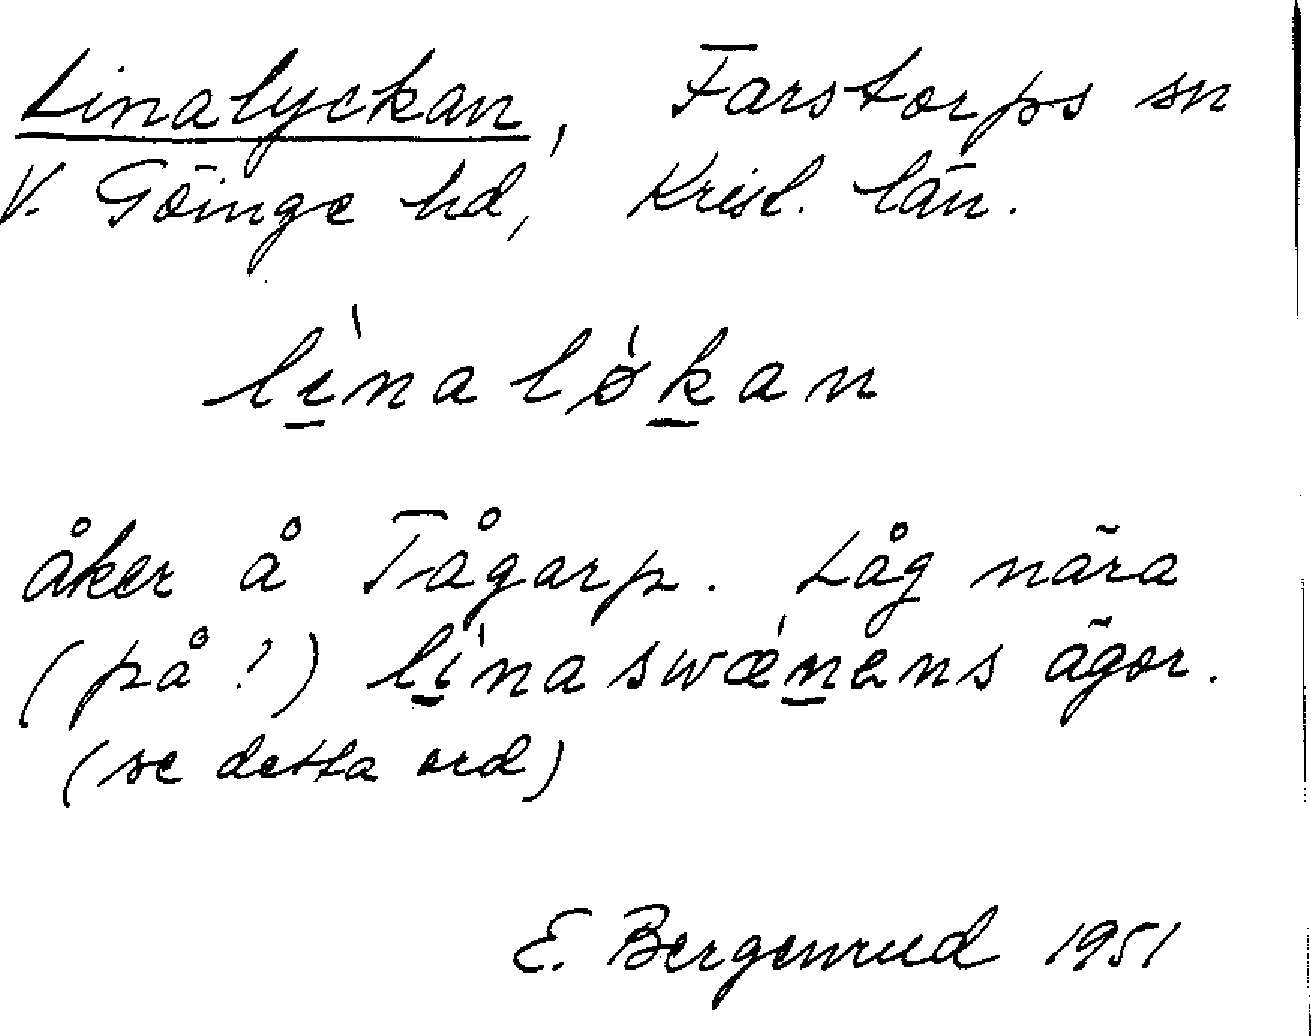 Linalyckan, Farstorps sn
V. Göinge hd, Krist. län.
lìnaløkan
åker å Tågarp. Låg nära
(på?) lìnaswænens ägor.
(se detta ord)
E. Bergenrud 1951